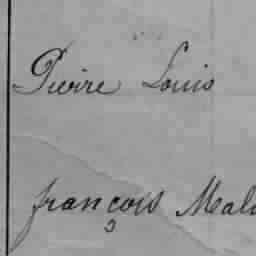 Pierre Louis
françois Mal